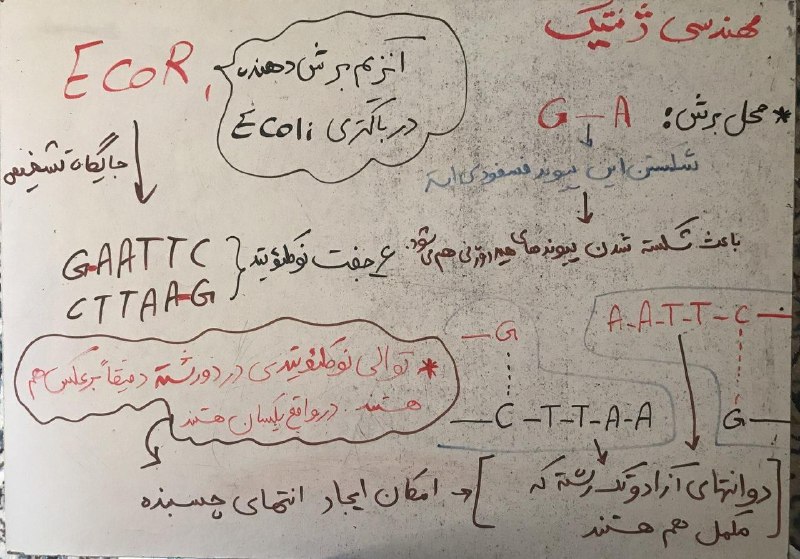 مهندسی ژنتیک
* محل برش: G – A
شکستن این پیوند فسفودی استر
باعث شکسته شدن پیوندهای هیدروژنی هم می‌شود.
EcoR1
آنزیم برش دهنده
در باکتری Ecoli
جایگاه تشخیص
GAATTC
CTTAAG
۶ جفت نوکلئوتید
* توالی نوکلئوتیدی در دو رشته دقیقاً برعکس هم
هستند. در واقع یکسان هستند
— G
— C – T – T – A – A
A – A – T – T – C —
G —
دو انتهای آزاد و تک رشته که
مکمل هم هستند
امکان ایجاد انتهای چسبنده